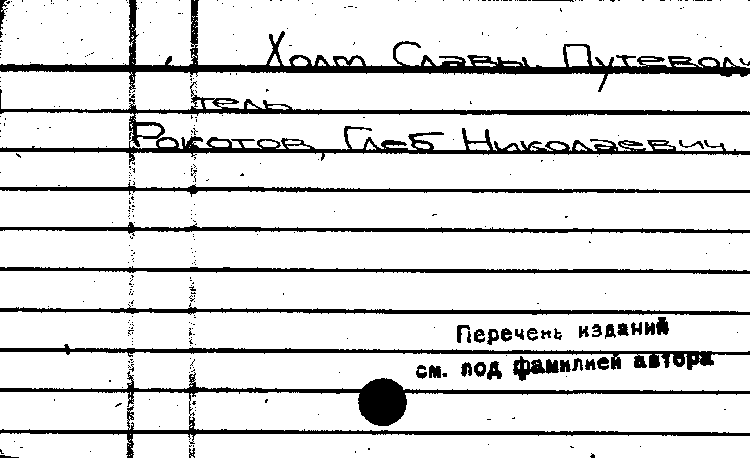 Холм Славы. Путеводи
тель
Рокотов, Глеб Николаевич.
Перечень изданий
см. под фамилией автора